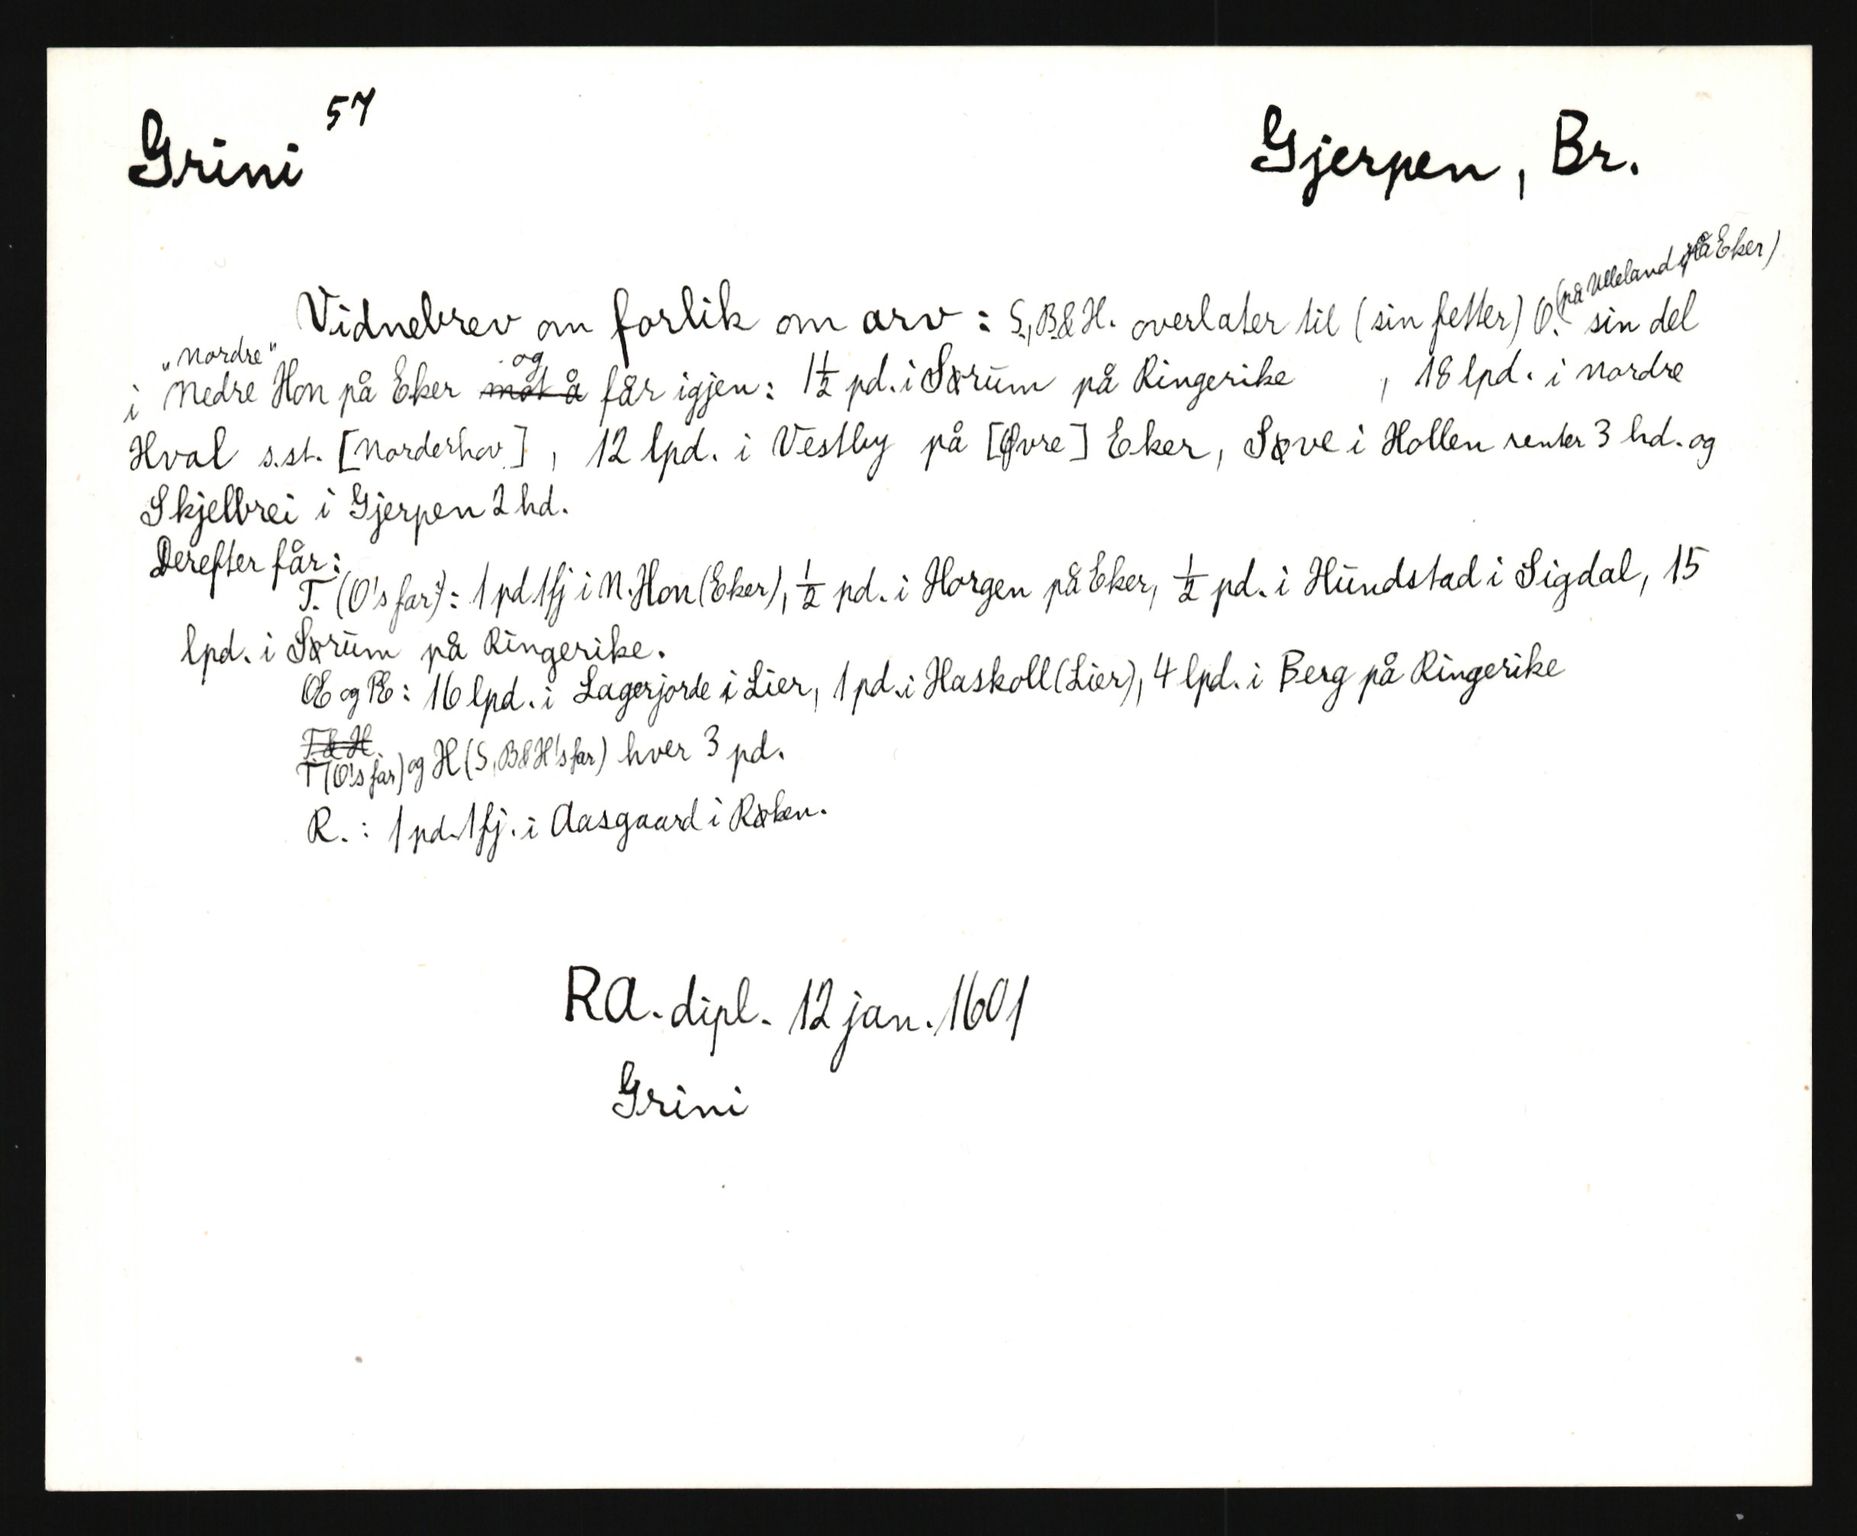 Grini 57 Gjerpen, Br.
Vidnebrev om forlik om arv: S, B & H. overlater til (sin fetter) O. (på Ulleland på Eker) sin del
i "nordre" Nedre Hon på Eker ~~mot å~~ og får igjen: 1½ pd. i Sørum på Ringerike , 18 lpd. i nordre
Hval s.st. [Norderhov], 12 lpd. i Vestby på [Øvre] Eker, Søve i Hollen renter 3 hd. og
Skjelbrei i Gjerpen 2 hd.
Derefter får:
T. (O's far): 1 pd 1 fj i N. Hon (Eker), ½ pd. i Horgen på Eker, ½ pd. i Hundstad i Sigdal, 15
lpd. i Sørum på Ringerike.
OE og PE: 16 lpd. i Lagerjorde i Lier, 1 pd. i Haskoll (Lier), 4 lpd. i Berg på Ringerike
~~T & H~~
T (O's far) og H (S, B & H's far) hver 3 pd.
R.: 1 pd. 1 fj. i Aasgaard i Røken.
RA. dipl. 12 jan. 1601
Grini